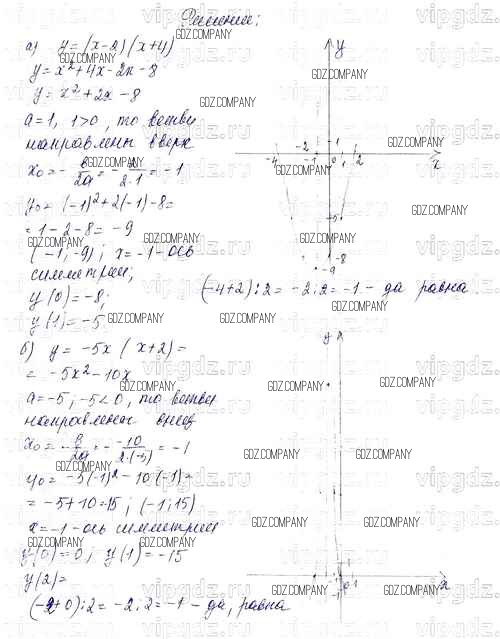 Решение:
а) y = (x-2)(x+4)
y = x² + 4x - 2x - 8
y = x² + 2x - 8
a = 1, 1>0, то ветви
направлены вверх
x₀ = - b/2a = - 2/2·1 = -1
y₀ = (-1)² + 2(-1) - 8 =
= 1 - 2 - 8 = -9
(-1; -9); x = -1 - ось
симметрии;
y(0) = -8;
y(1) = -5
(-4+2):2 = -2:2 = -1 - да равна.
б) y = -5x (x+2) =
= -5x² - 10x
a = -5, -5<0, то ветви
направлены вниз
x₀ = - b/2a = - -10/2·(-5) = -1
y₀ = -5(-1)² - 10·(-1) =
= -5+10=15; (-1; 15)
x = -1 - ось симметрии
y(0) = 0; y(1) = -15
y(2) =
(-2+0):2 = -2:2 = -1 - да, равна
y
-4 -2 -1 0 1 2 x
1
-5
-8
-9
y
0 1 x
GDZ.COMPANY
vipgdz.ru